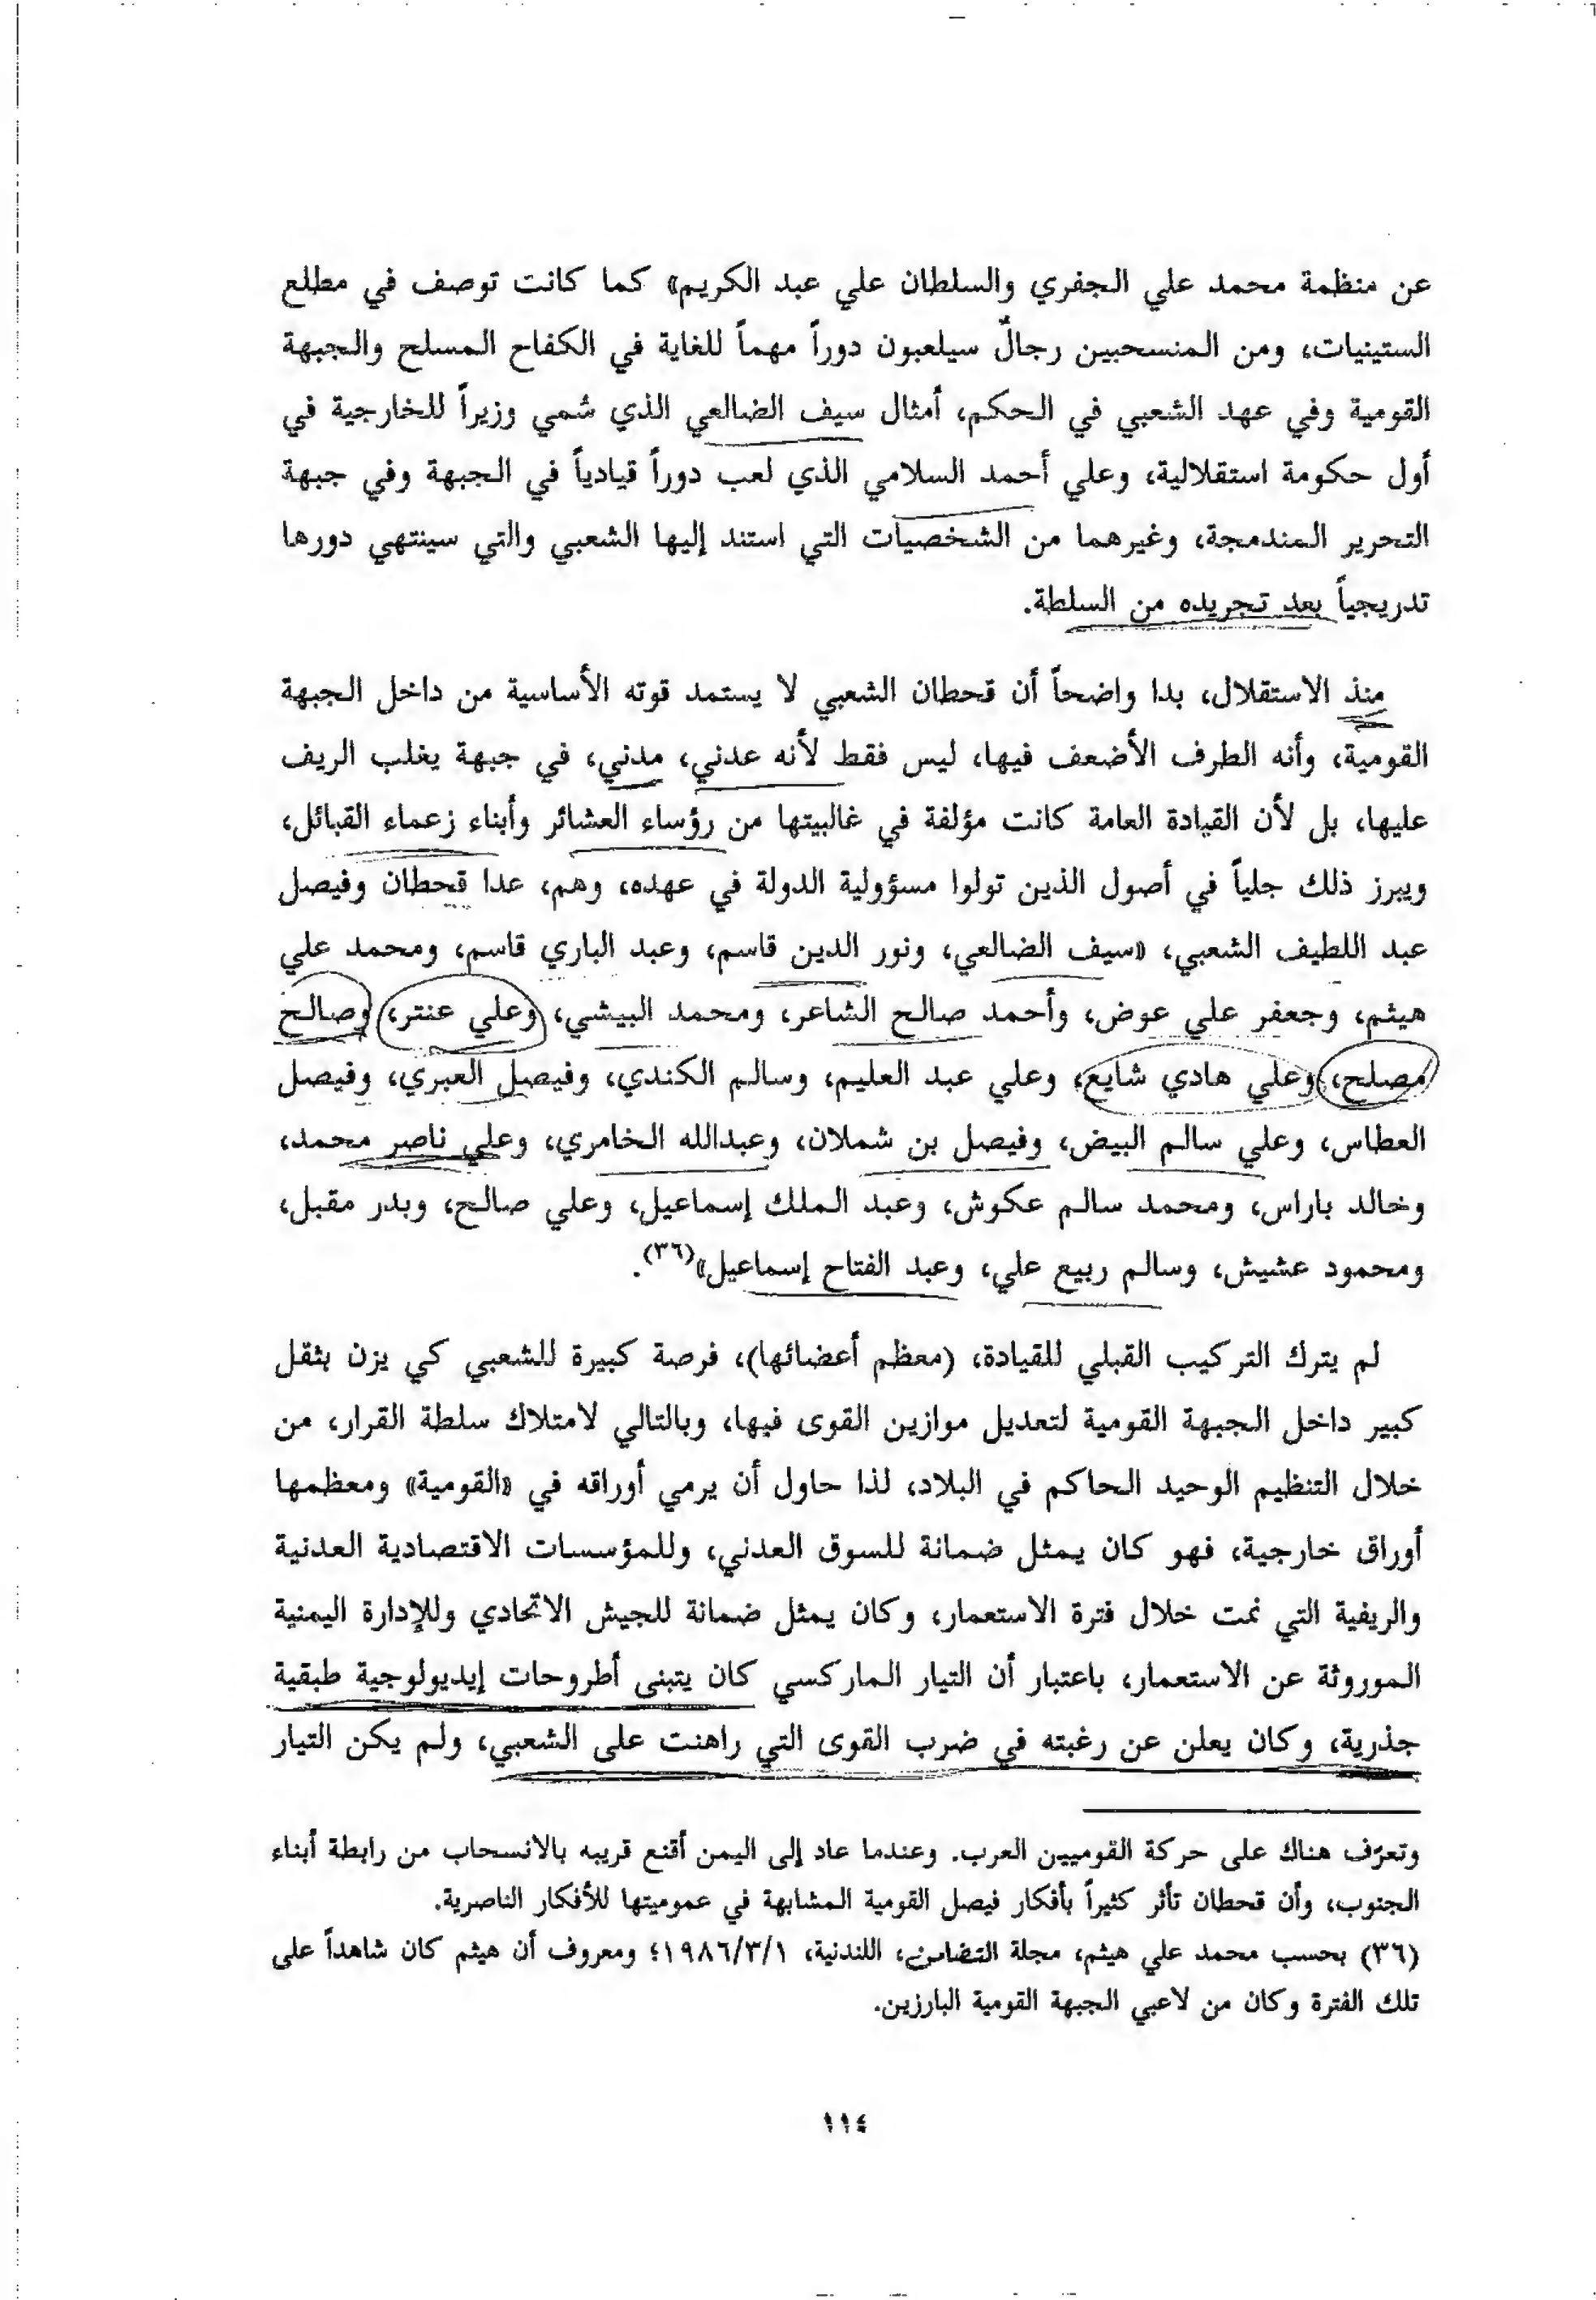 عن منظمة محمد علي الجفري والسلطان علي عبد الكريم» كما كانت توصف في مطلع
الستينيات، ومن المنسحبين رجالٌ سيلعبون دوراً مهماً للغاية في الكفاح المسلح والجبهة
القومية وفي عهد الشعبي في الحكم، أمثال سيف الضالعي الذي سُمي وزيراً للخارجية في
أول حكومة استقلالية، وعلي أحمد السلامي الذي لعب دوراً قيادياً في الجبهة وفي جبهة
التحرير المندمجة، وغيرهما من الشخصيات التي استند إليها الشعبي والتي سينتهي دورها
تدريجياً بعد تجريده من السلطة.
منذ الاستقلال، بدا واضحاً أن قحطان الشعبي لا يستمد قوته الأساسية من داخل الجبهة
القومية، وأنه الطرف الأضعف فيها، ليس فقط لأنه عدني، مدني، في جبهة يغلب الريف
عليها، بل لأن القيادة العامة كانت مؤلفة في غالبيتها من رؤساء العشائر وأبناء زعماء القبائل،
ويبرز ذلك جلياً في أصول الذين تولوا مسؤولية الدولة في عهده، وهم، عدا قحطان وفيصل
عبد اللطيف الشعبي، «سيف الضالعي، ونور الدين قاسم، وعبد الباري قاسم، ومحمد علي
هيثم، وجعفر علي عوض، وأحمد صالح الشاعر، ومحمد البيشي، وعلي عنتر، وصالح
مصلح، وعلي هادي شايع، وعلي عبد العليم، وسالم الكندي، وفيصل العبري، وفيصل
العطاس، وعلي سالم البيض، وفيصل بن شملان، وعبدالله الخامري، وعلي ناصر محمد،
وخالد باراس، ومحمد سالم عكوش، وعبد الملك إسماعيل، وعلي صالح، وبدر مقبل،
ومحمود عشيش، وسالم ربيع علي، وعبد الفتاح إسماعيل»(٣٦).
لم يترك التركيب القبلي للقيادة، (معظم أعضائها)، فرصة كبيرة للشعبي كي يزن بثقل
كبير داخل الجبهة القومية لتعديل موازين القوى فيها، وبالتالي لامتلاك سلطة القرار، من
خلال التنظيم الوحيد الحاكم في البلاد، لذا حاول أن يرمي أوراقه في «القومية» ومعظمها
أوراق خارجية، فهو كان يمثل ضمانة للسوق العدني، وللمؤسسات الاقتصادية العدنية
والريفية التي نمت خلال فترة الاستعمار، وكان يمثل ضمانة للجيش الاتحادي وللإدارة اليمنية
الموروثة عن الاستعمار، باعتبار أن التيار الماركسي كان يتبنى أطروحات إيديولوجية طبقية
جذرية، وكان يعلن عن رغبته في ضرب القوى التي راهنت على الشعبي، ولم يكن التيار
وتعرّف هناك على حركة القوميين العرب. وعندما عاد إلى اليمن أقنع قريبه بالانسحاب من رابطة أبناء
الجنوب، وأن قحطان تأثر كثيراً بأفكار فيصل القومية المشابهة في عموميتها للأفكار الناصرية.
(٣٦) بحسب محمد علي هيثم، مجلة التضامن، اللندنية، ١٩٨٦/٣/١؛ ومعروف أن هيثم كان شاهداً على
تلك الفترة وكان من لاعبي الجبهة القومية البارزين.
١١٤